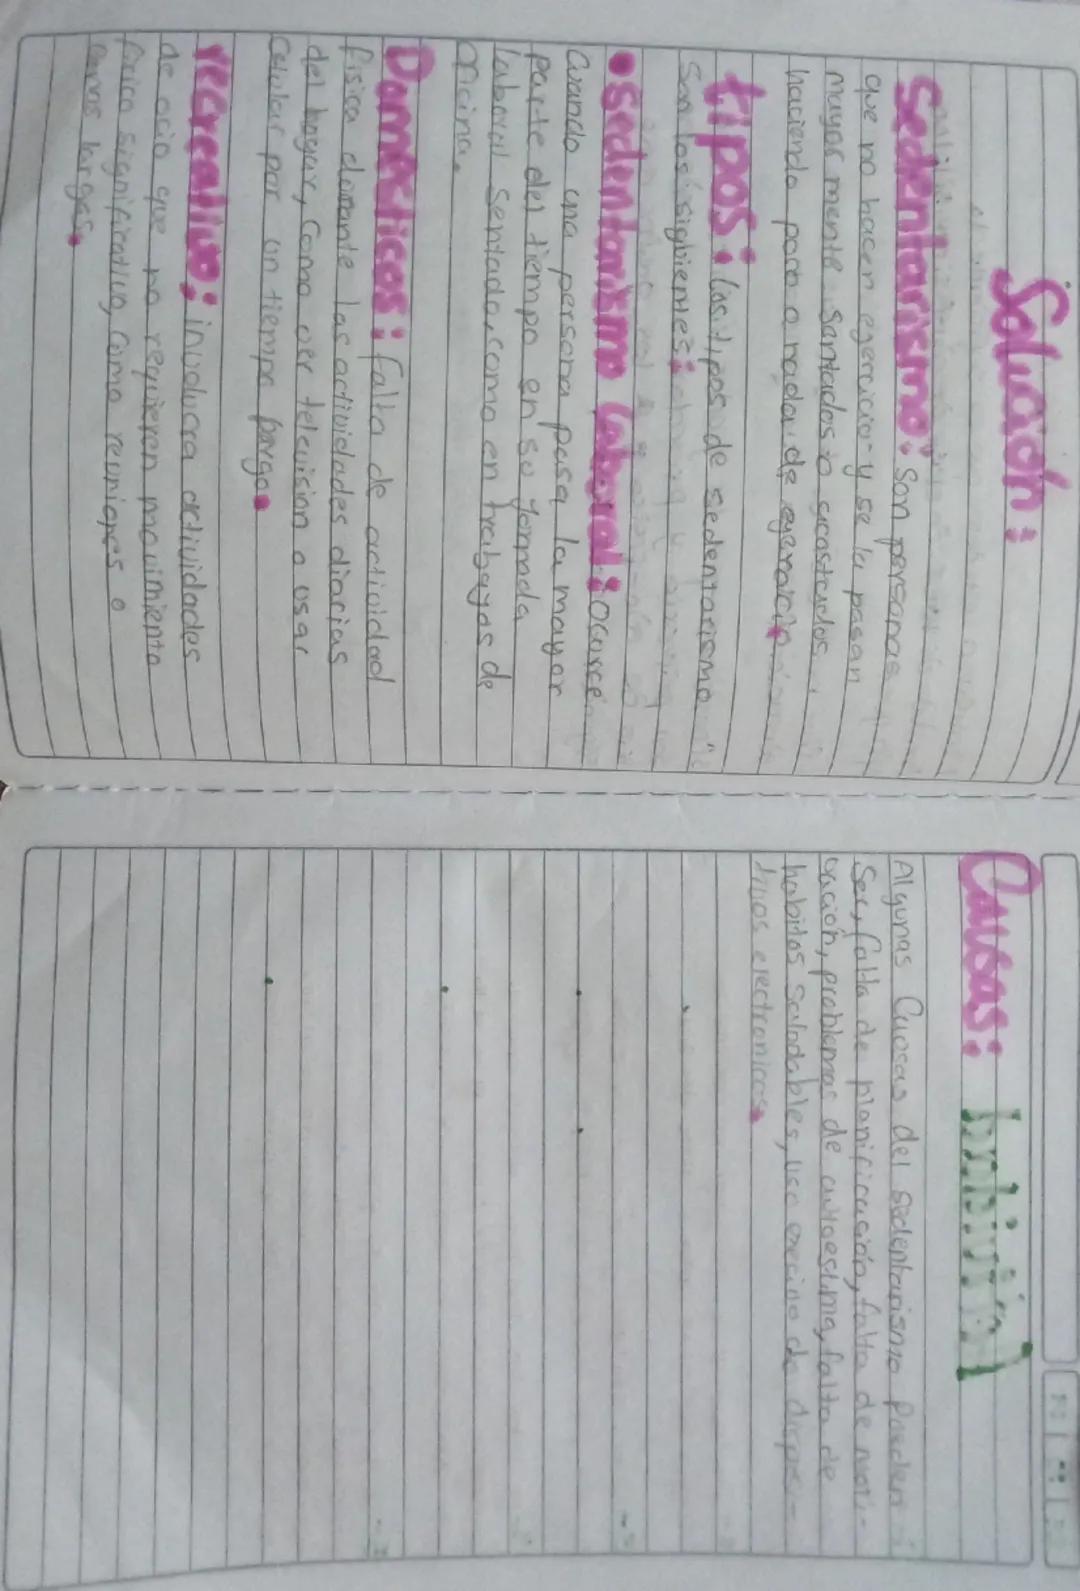 Solución:
Sedentarismo: Son personas
que no hacen egercicio y se la pasan
mayor mente Santados o acostados
haciendo poco o nada de egercicio
tipos: los tipos de sedentarismo
Son los sigbientes:
• sedentarismo laboral: ocurre
Cuando una persona pasa la mayor
parte del tiempo en su Jornada
laboral sentado, como en trabayos de
oficina.
Domésticos: falta de actividad
física durante las actividades diarias
del hogar, Como ver television o usar
celular por un tiempo largo.
recreativo: involucra actividades
de ocio que no requieren movimiento
físico significativo, Como reuniones o
largas.
Causas:
Algunas Causas del sedentarismo Pueden
Ser, falta de planificación, falta de moti-
vación, problemas de autoestima, falta de
habitos saludables, uso de dispisi-
tivos electronicos.